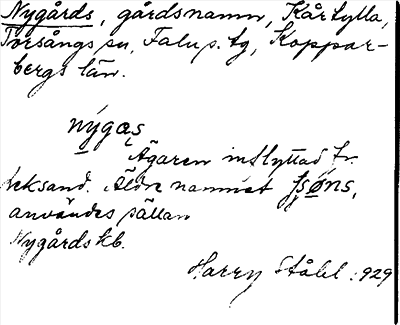 Nygårds, gårdsnamn, Kårtylla,
Torsångs sn, Falu s. tg, Koppar-
bergs län.
nýgas
Ägaren inflyttad fr.
Leksand. Äldre namnet
användes sällan
Nygårds kb.
Harry Ståhl 1929